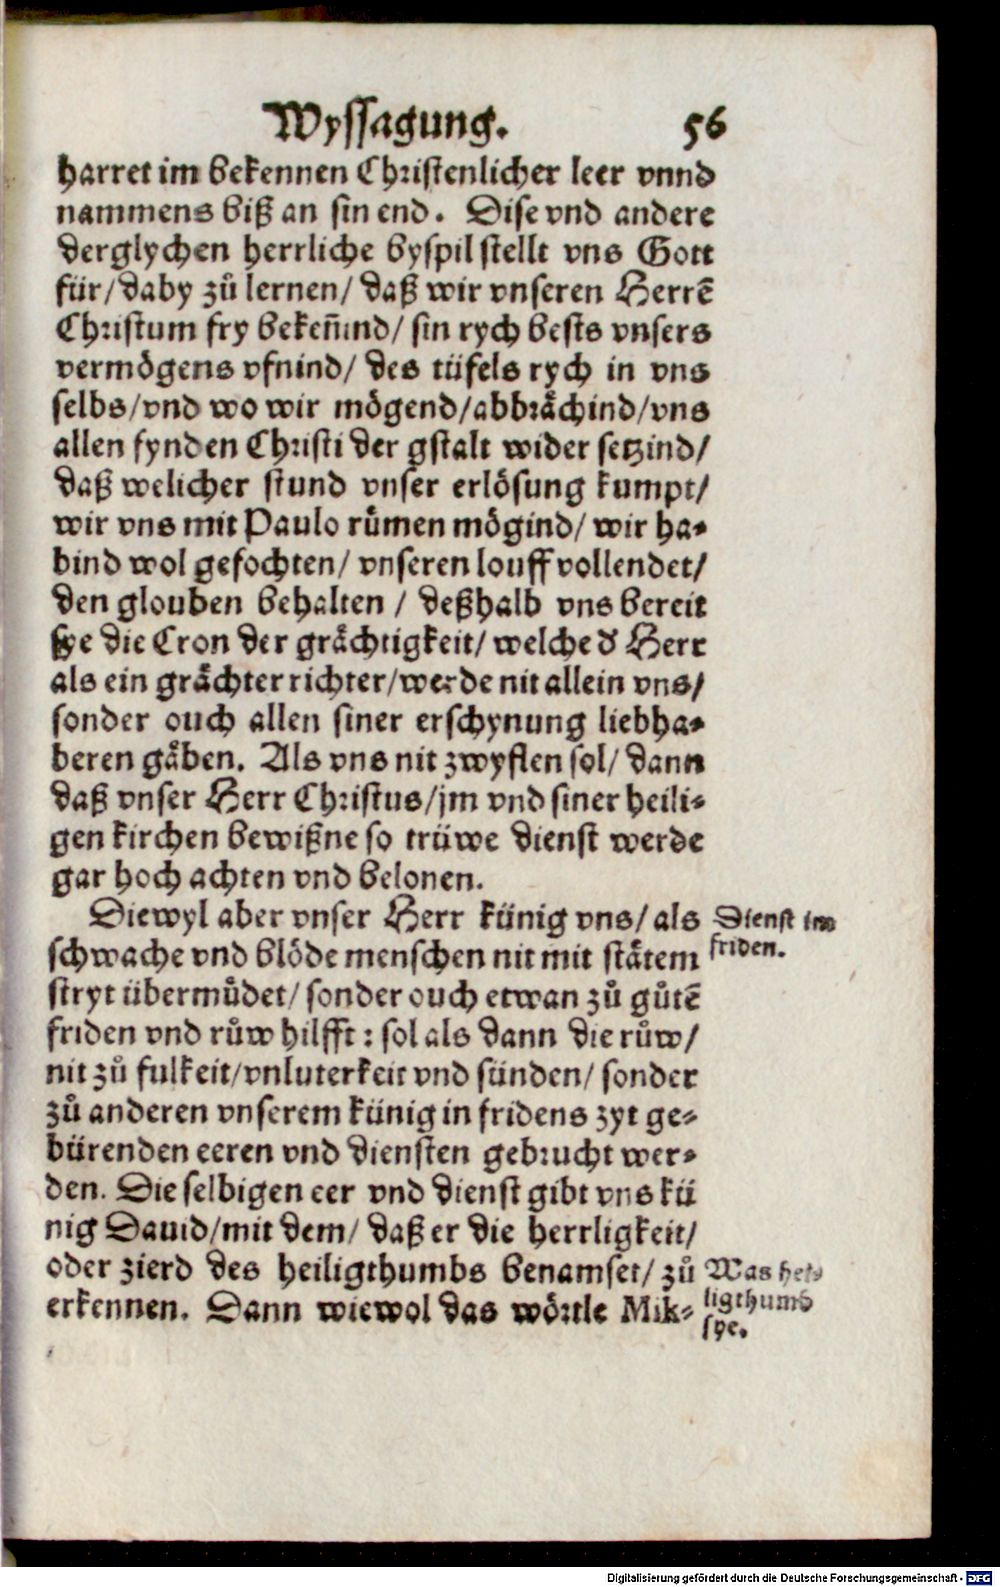 Wyssagung. 56
harret im bekennen Christenlicher leer vnnd
nammens biß an sin end. Dise vnd andere
derglychen herrliche byspil stellt vns Gott
für/ daby zů lernen/ daß wir vnseren Herrẽ
Christum fry bekeñind/ sin rych bests vnsers
vermögens vfnind/ des tüfels rych in vns
selbs/ vnd wo wir mögend/ abbrächind/ vns
allen fynden Christi der gstalt wider setzind/
daß welicher stund vnser erlösung kumpt/
wir vns mit Paulo rümen mögind/ wir ha-
bind wol gefochten/ vnseren louff vollendet/
den glouben behalten / deßhalb vns bereit
sye die Cron der grächtigkeit/ welche d̕ Herr
als ein grächter richter/ werde nit allein vns/
sonder ouch allen siner erschynung liebha-
beren gäben. Als vns nit zwyflen sol/ dann
daß vnser Herr Christus/ jm vnd siner heili-
gen kirchen bewißne so trüwe dienst werde
gar hoch achten vnd belonen.
Diewyl aber vnser Herr künig vns/ als
schwache vnd blöde menschen nit mit stätem
stryt übermůdet/ sonder ouch etwan zů gůtẽ
friden vnd růw hilfft: sol als dann die růw/
nit zů fulkeit/ vnluterkeit vnd sünden/ sonder
zů anderen vnserem künig in fridens zyt ge-
bürenden eeren vnd diensten gebrucht wer-
den. Die selbigen eer vnd dienst gibt vns kü
nig Dauid/ mit dem/ daß er die herrligkeit/
oder zierd des heiligthumbs benamset/ zů
erkennen. Dann wiewol das wörtle Mik-
Dienst im
friden.
Was hei-
ligthumb
sye.
Digitalisierung gefördert durch die Deutsche Forschungsgemeinschaft - DFG